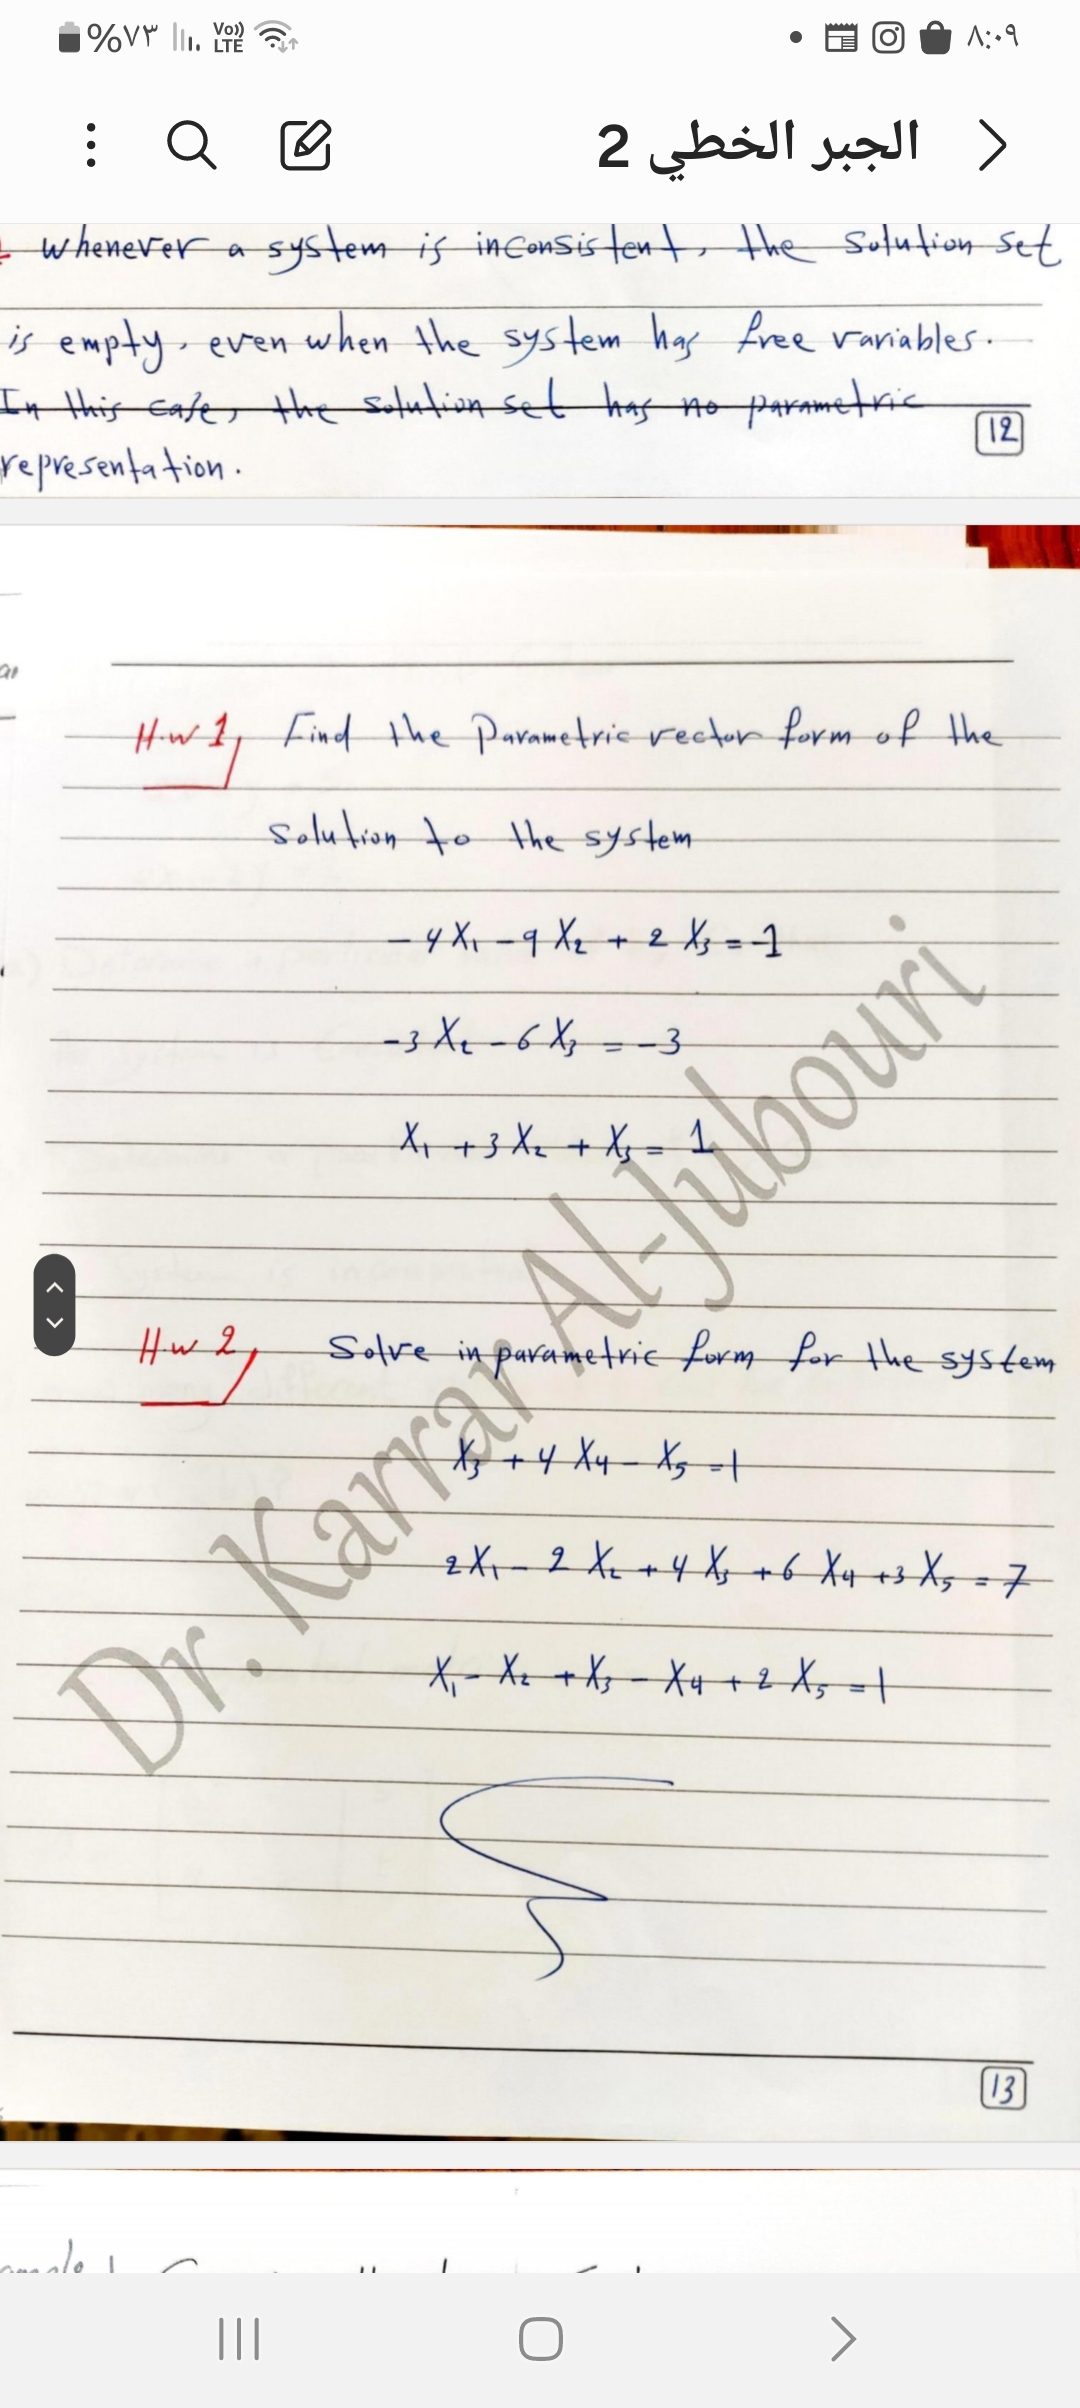 %٧٣ Vo)) LTE ٨:٠٩
الجبر الخطي 2
whenever a system is inconsistent, the solution set
is empty, even when the system has free variables.
In this case, the solution set has no parametric
representation.
12
H.w 1, Find the Parametric vector form of the
solution to the system
-4X₁ -9X₂ + 2X₃ = -1
-3X₂ - 6X₃ = -3
X₁ + 3X₂ + X₃ = 1
H.w 2, Solve in parametric form for the system
X₃ + 4X₄ - X₅ = 1
2X₁ - 2X₂ + 4X₃ + 6X₄ + 3X₅ = 7
X₁ - X₂ + X₃ - X₄ + 2X₅ = 1
Dr. Karrar Al-Jubouri
13